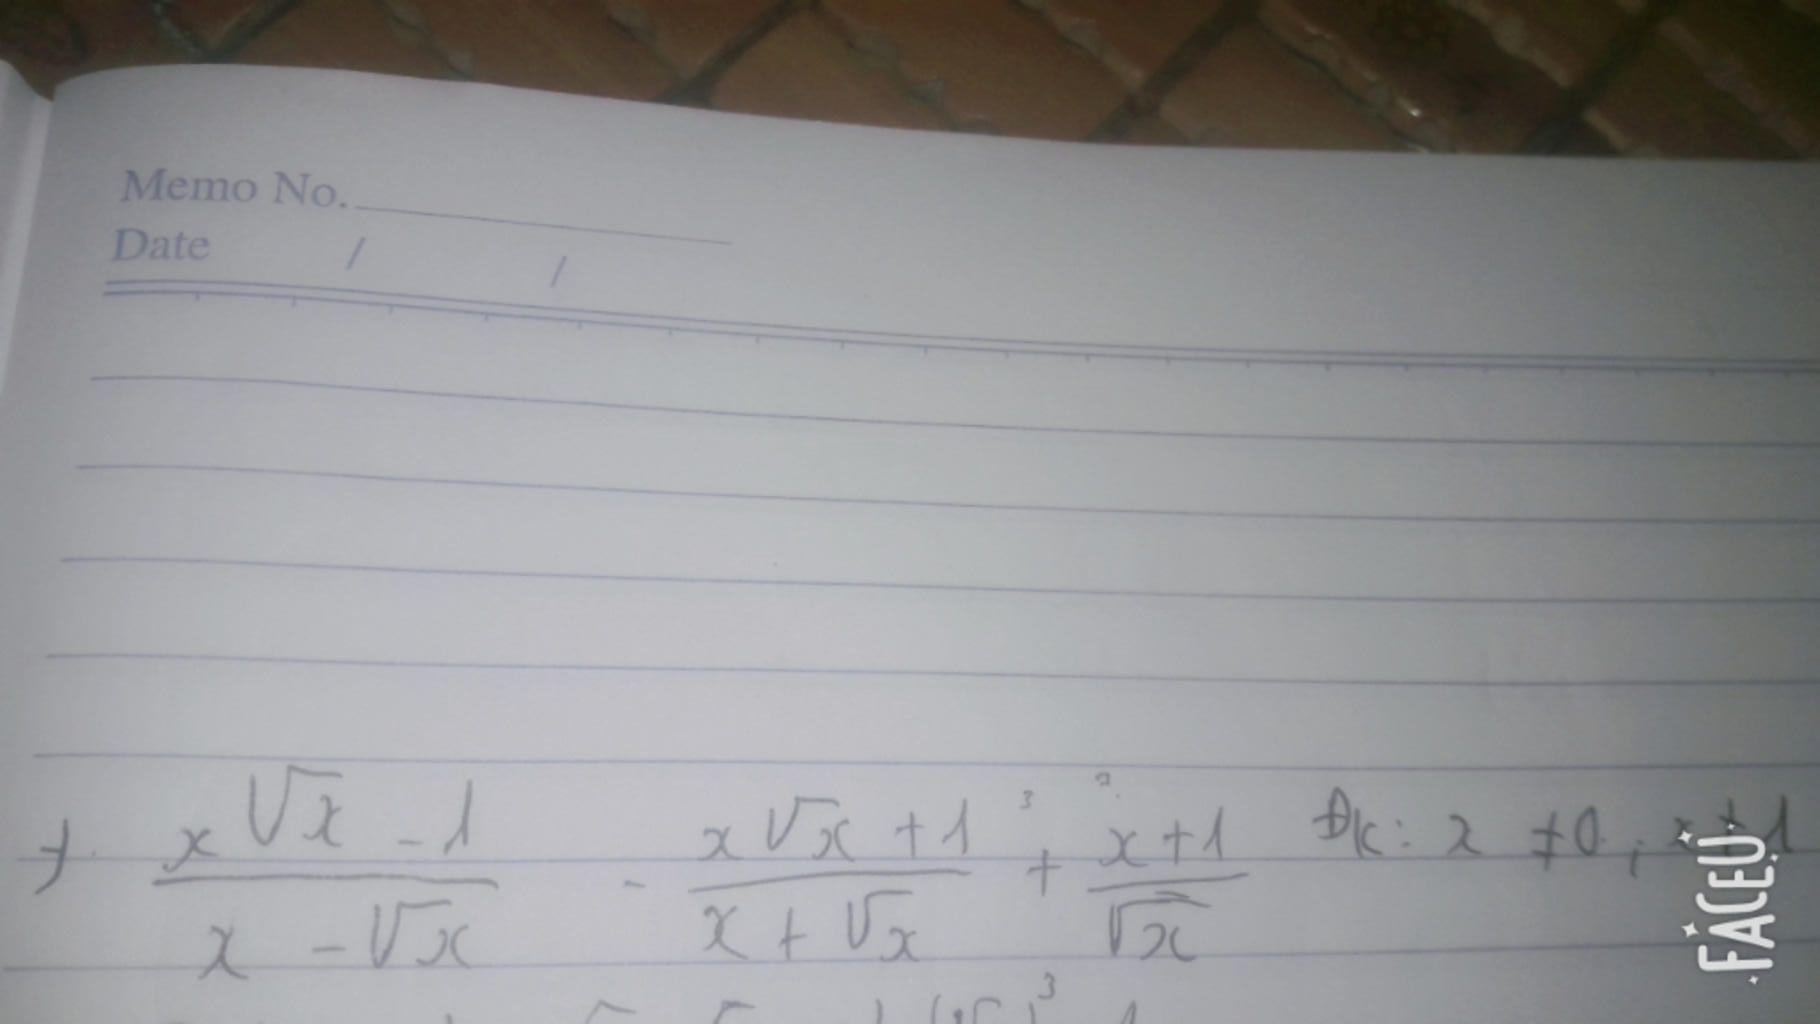 Memo No.
Date / /
x√x - 1 / x - √x - x√x + 1 / x + √x + x + 1 / √x Đk: x ≠ 0 ; x ≠ 1
FACEU